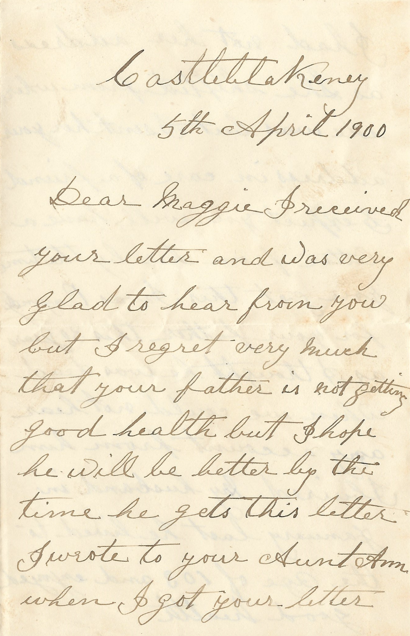 Castleblakeney
5th April 1900
Dear Maggie I received
your letter and was very
glad to hear from you
but I regret very much
that your father is not getting
good health but I hope
he will be better by the
time he gets this letter
I wrote to your Aunt Ann
when I got your letter